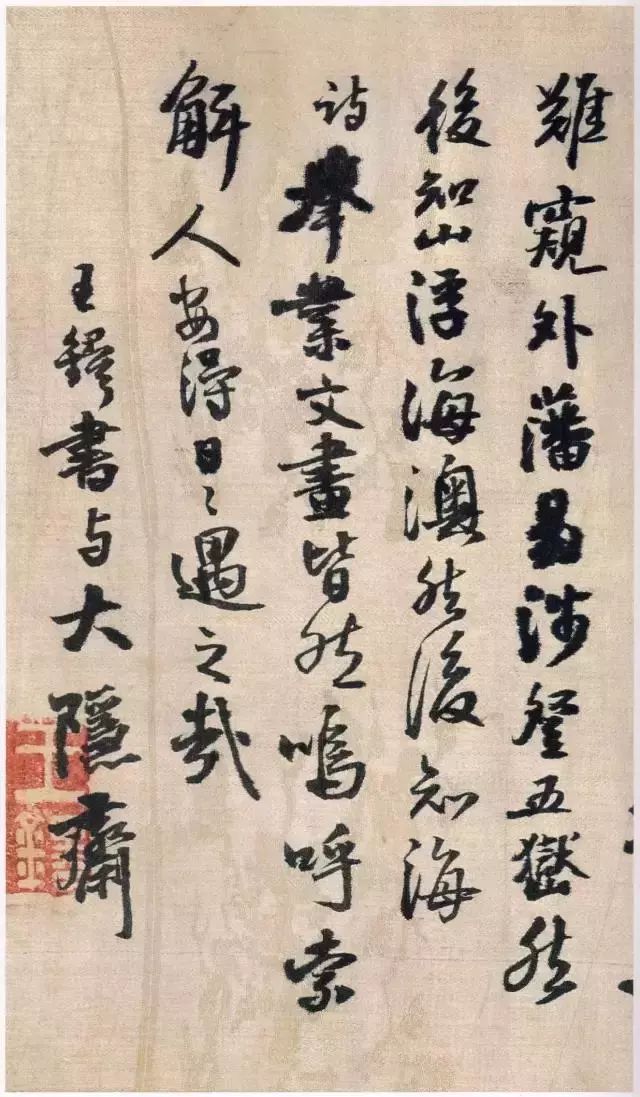 難窺外藩易涉登五嶽然
後知山浮海澳然後知海
詩舉業文畫皆然嗚呼索
解人安得日〻遇之哉
王鐸書与大隱齋